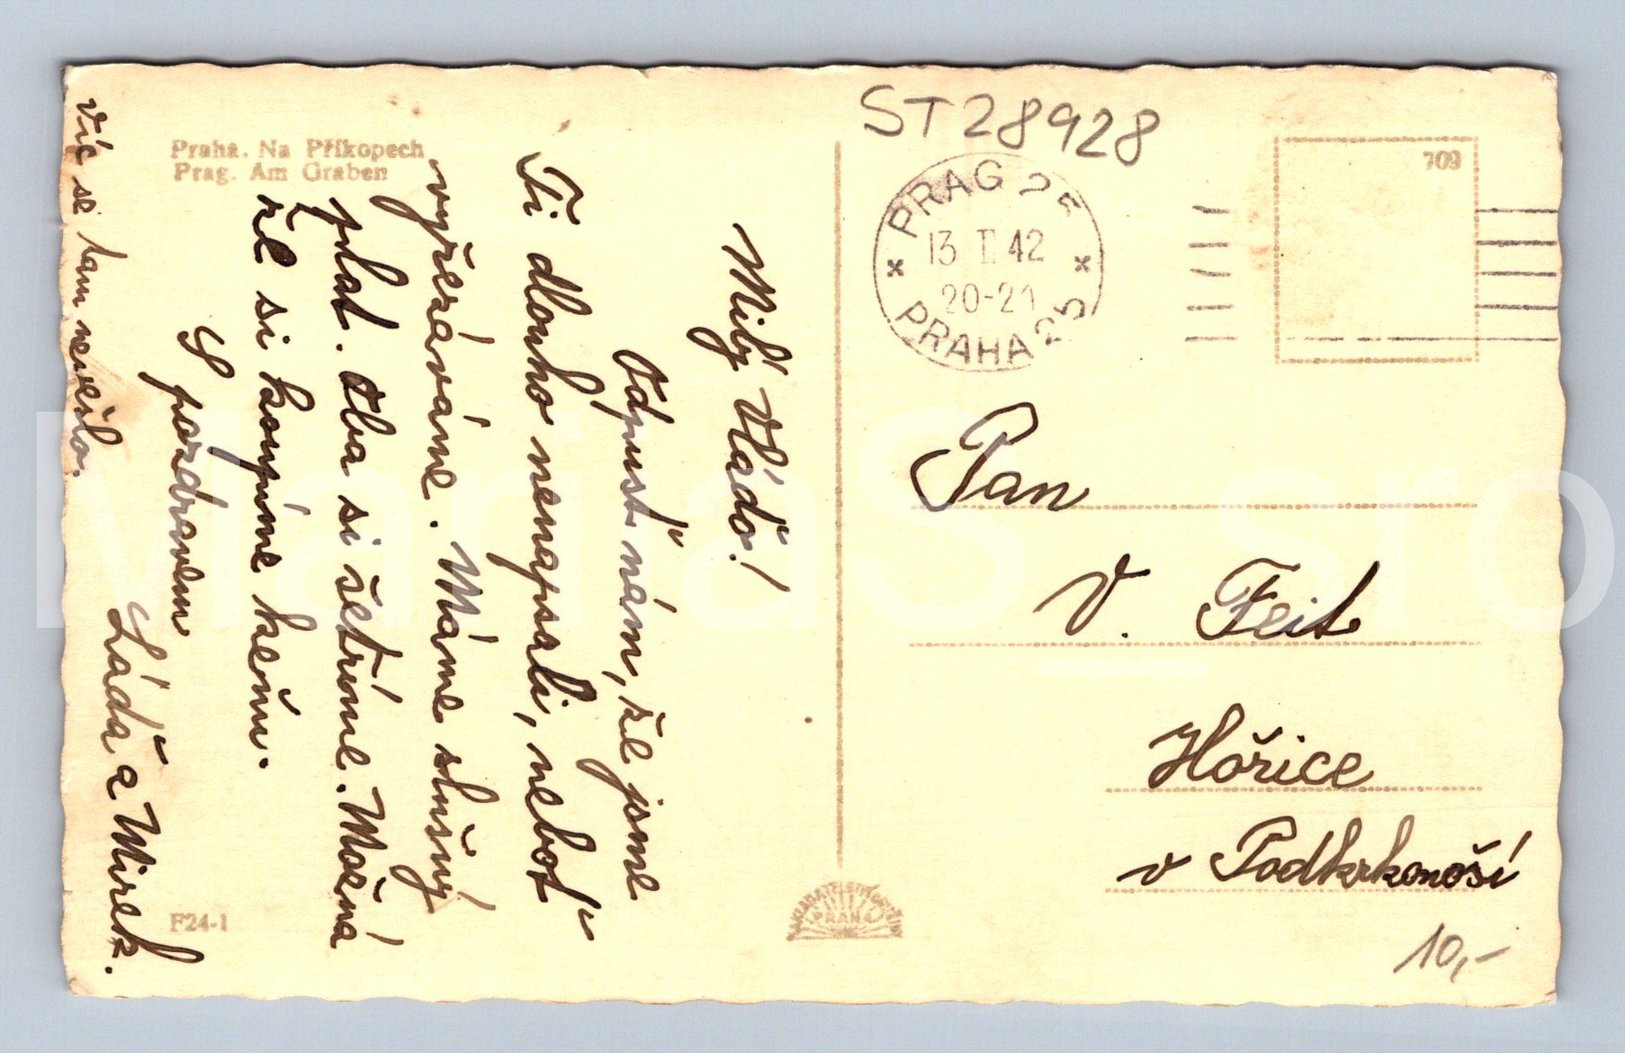 Praha. Na Příkopech
Prag. Am Graben
Milý Vláďo!
Odpusť nám, že jsme
Ti dlouho nenapsali, neboť
vyřezáváme. Máme slušný
plat. Oba si šetříme. Možná
že si koupíme
S pozdravem
Láďa a Mirek.
Víc se tam nevešlo.
F24-1
ST28928
PRAG 25
13 I. 42
20-21
PRAHA 25
709
Pan
V. Feit
Hořice
v Podkrkonoší
10,-
PRAHA
MariaS_sro